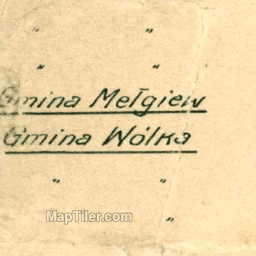 " "
" "
Gmina Mełgiew
Gmina Wólka
" "
MapTiler.com
"